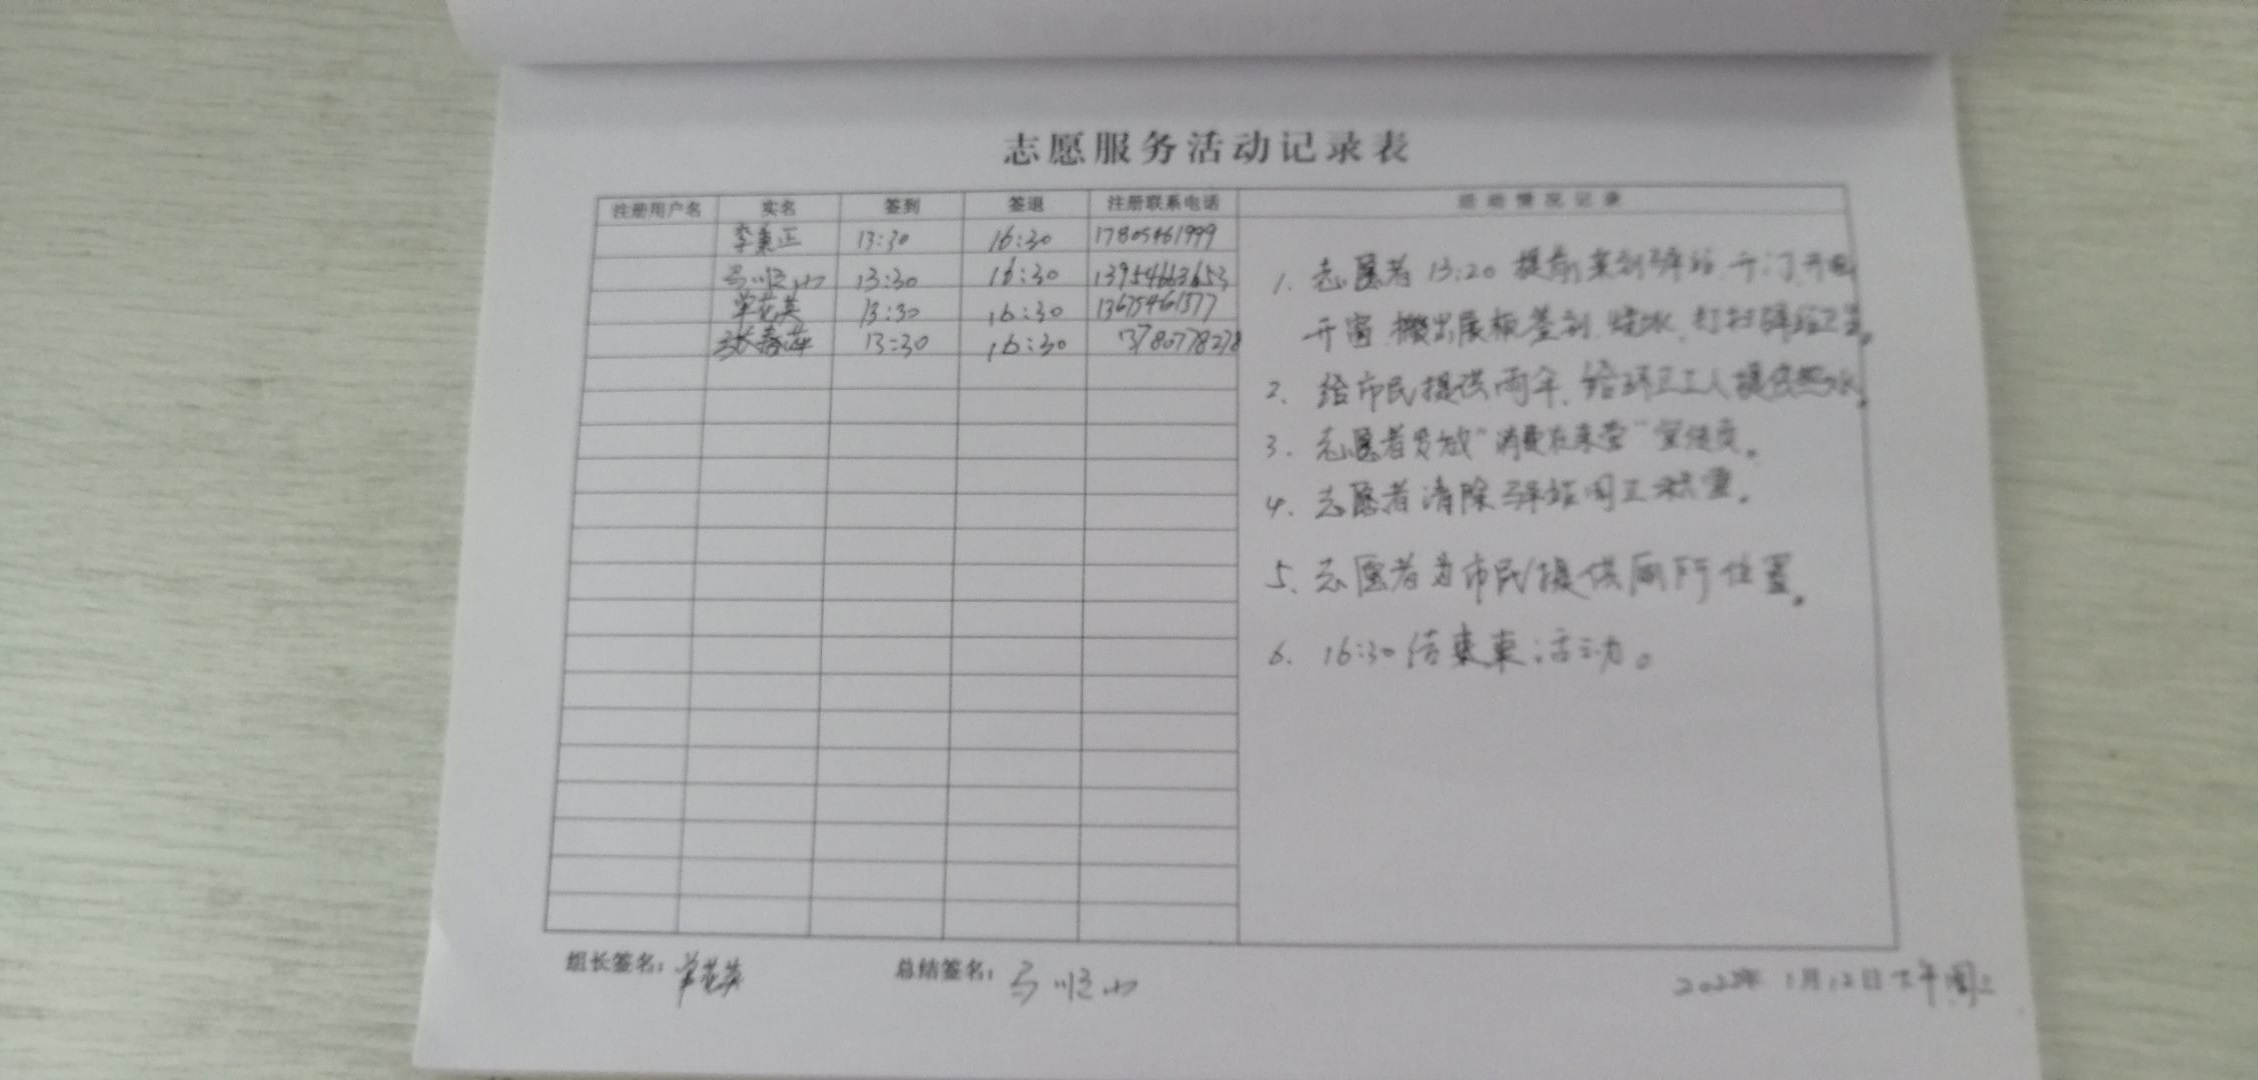 志愿服务活动记录表
注册用户名 实名 签到 签退 注册联系电话 活动情况记录
李秉正 13:30 16:30 17805461999
马顺山 13:30 16:30 13954663653
单花英 13:30 16:30
张春萍 13:30 16:30 13780778278
1. 志愿者13:20提前来到驿站开门开电
开窗.搬出展板签到.烧水.打扫驿站卫生。
2. 给市民提供雨伞.给环卫工人提供热水。
3. 志愿者发放“消费在东营”宣传页。
4. 志愿者清除驿站周卫积雪。
5. 志愿者为市民提供厕所位置。
6. 16:30结束束活动。
组长签名：单花英 总结签名：马顺山 2022年1月12日下午周三